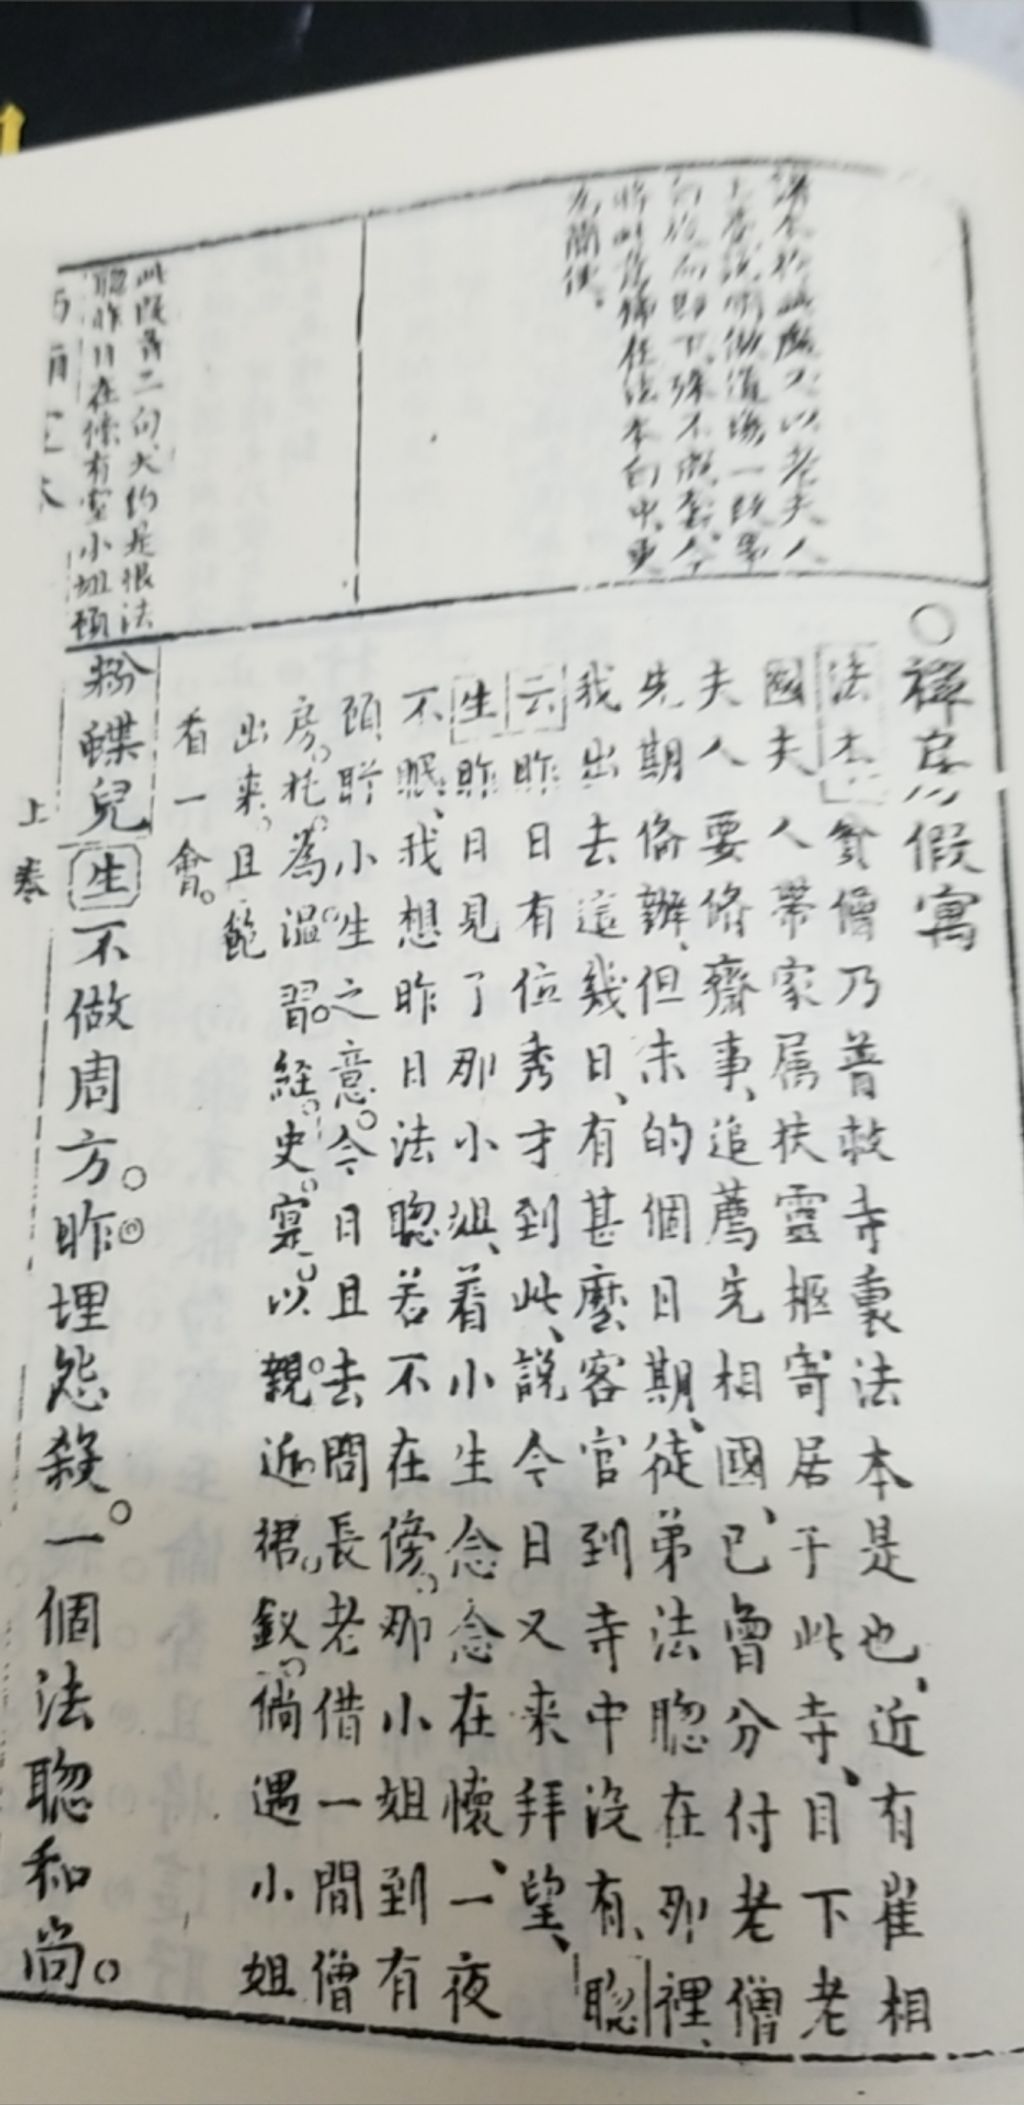 ○禪房假寓
法本貧僧乃普救寺裏法本是也、近有崔相
國夫人帶家屬扶靈柩寄居于此寺、目下老
夫人要脩齋事、追薦先相國、已曾分付老僧
先期俻辦、但未的個日期、徒弟法聰在那裡、
我出去這幾日、有甚麽客官到寺中沒有、聰
云昨日有位秀才到此、說今日又來拜望、
生昨日見了那小姐、着小生念念在懷、一夜
不眠、我想昨日法聰若不在傍。那小姐到有
顧盻小生之意。今日且去問長老借一間僧
房。托爲溫習經史。寔以親近裙釵。倘遇小姐
出來。且飽
看一會。
粉蝶兒生不做周方。昨埋怨殺。一個法聰和尚。
爲簡便。
此既首二句、大約是恨法
聰昨日在傍有當小姐顧
上卷